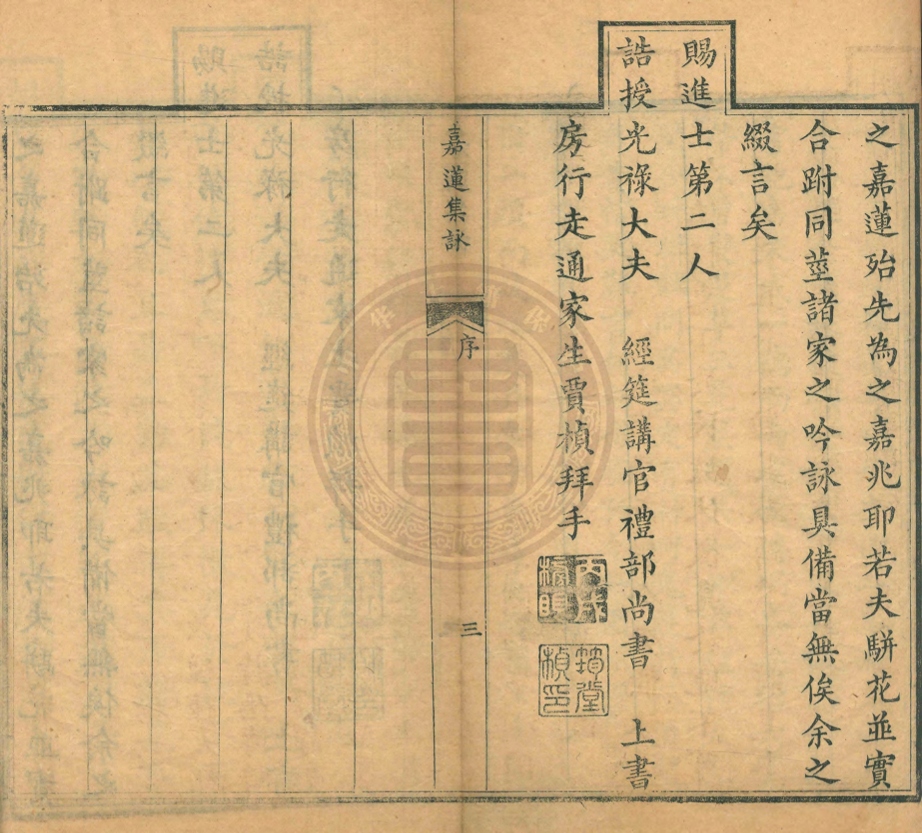 之嘉蓮殆先為之嘉兆耶若夫駢花並實
合跗同莖諸家之吟詠具備當無俟余之
綴言矣
賜進士第二人
誥授光祿大夫 經筵講官禮部尚書 上書
房行走通家生賈楨拜手
筠堂
楨印
嘉蓮集詠
序
三